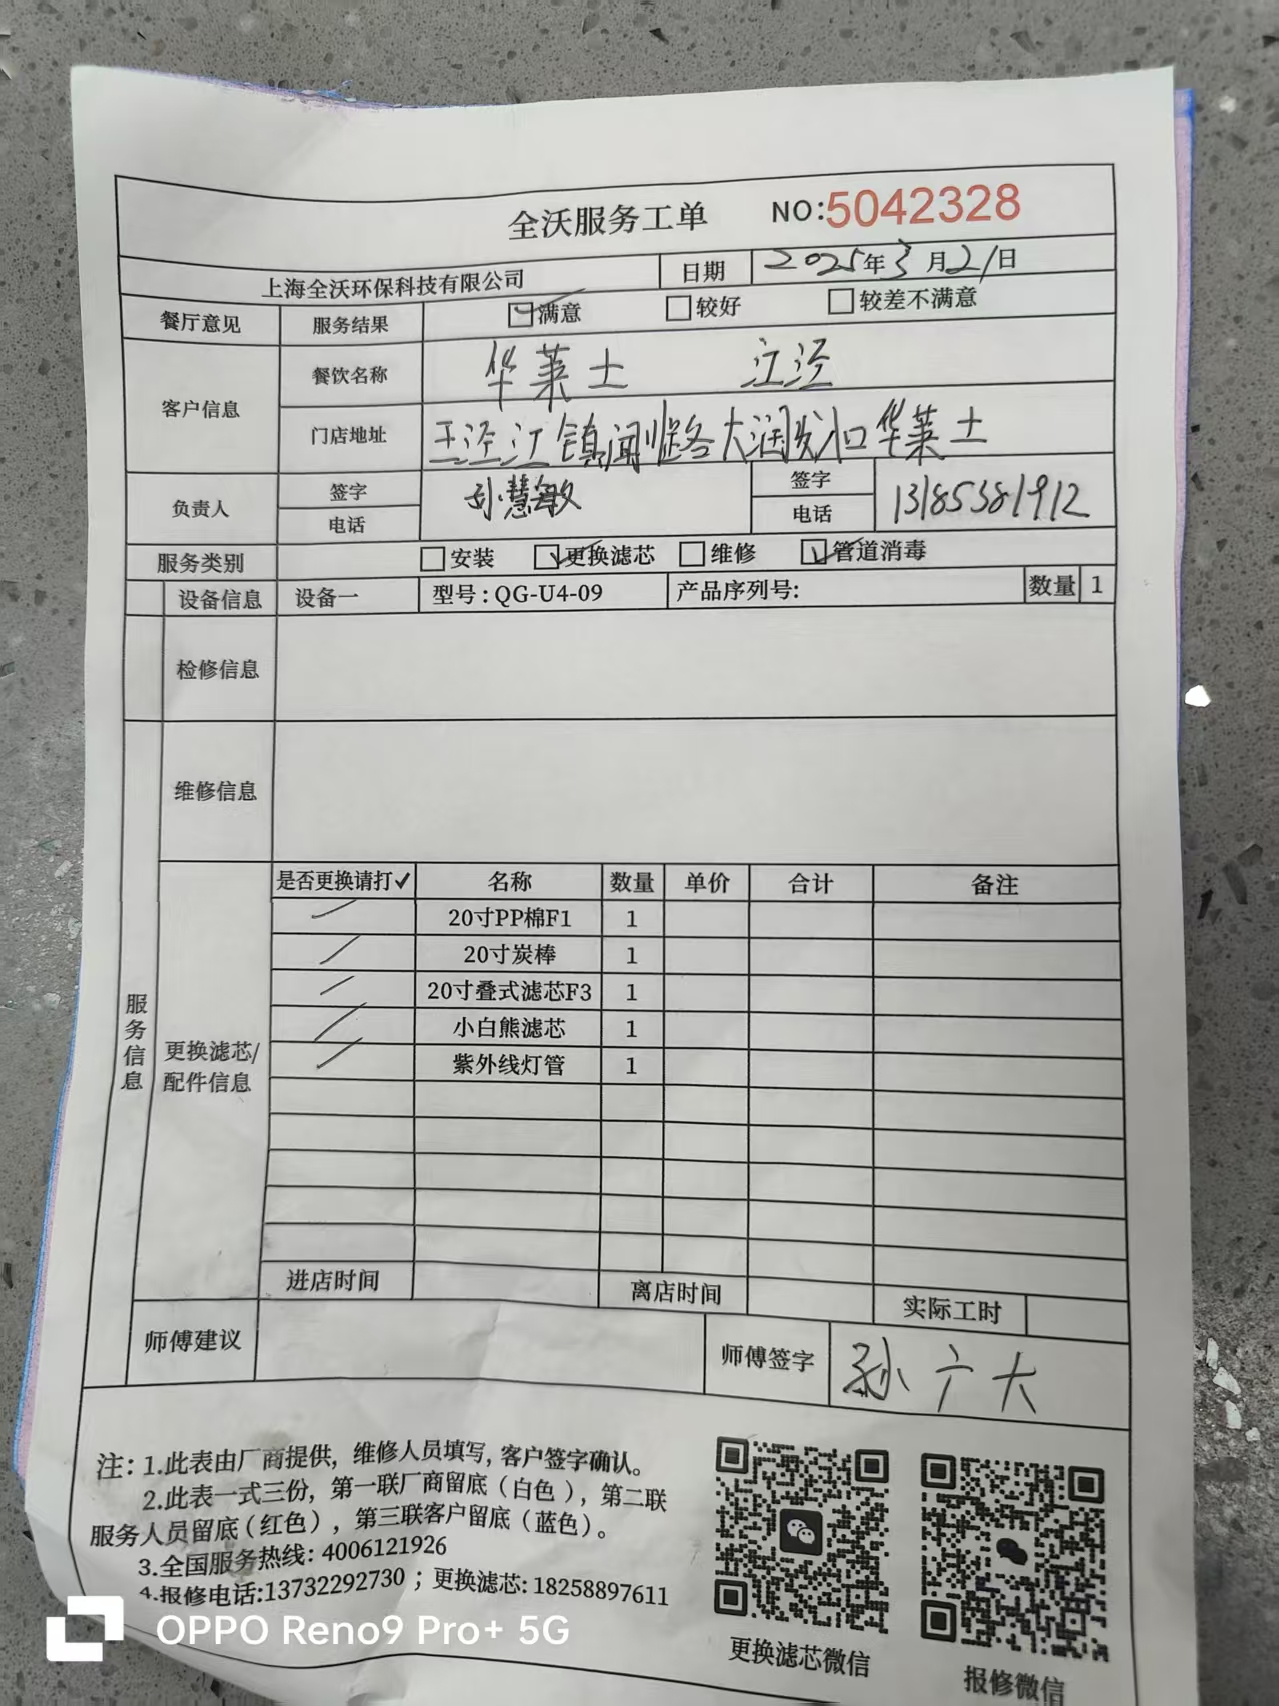 全沃服务工单 NO:5042328
上海全沃环保科技有限公司 日期 2025年3月21日
餐厅意见 服务结果 满意 较好 较差不满意
客户信息 餐饮名称 华莱士 江泾
门店地址 王泾江镇闻临路大润发口华莱士
负责人 签字 慧敏 签字
电话 电话 13185381912
服务类别 安装 更换滤芯 维修 管道消毒
设备信息 设备一 型号:QG-U4-09 产品序列号: 数量 1
检修信息
维修信息
服务信息
更换滤芯/配件信息
是否更换请打✓ 名称 数量 单价 合计 备注
20寸PP棉F1 1
20寸炭棒 1
20寸叠式滤芯F3 1
小白熊滤芯 1
紫外线灯管 1
进店时间 离店时间 实际工时
师傅建议 师傅签字 孙广大
注:1.此表由厂商提供,维修人员填写,客户签字确认。
2.此表一式三份,第一联厂商留底(白色),第二联
服务人员留底(红色),第三联客户留底(蓝色)。
3.全国服务热线:4006121926
4.报修电话:13732292730;更换滤芯:18258897611
更换滤芯微信
报修微信
OPPO Reno9 Pro+ 5G